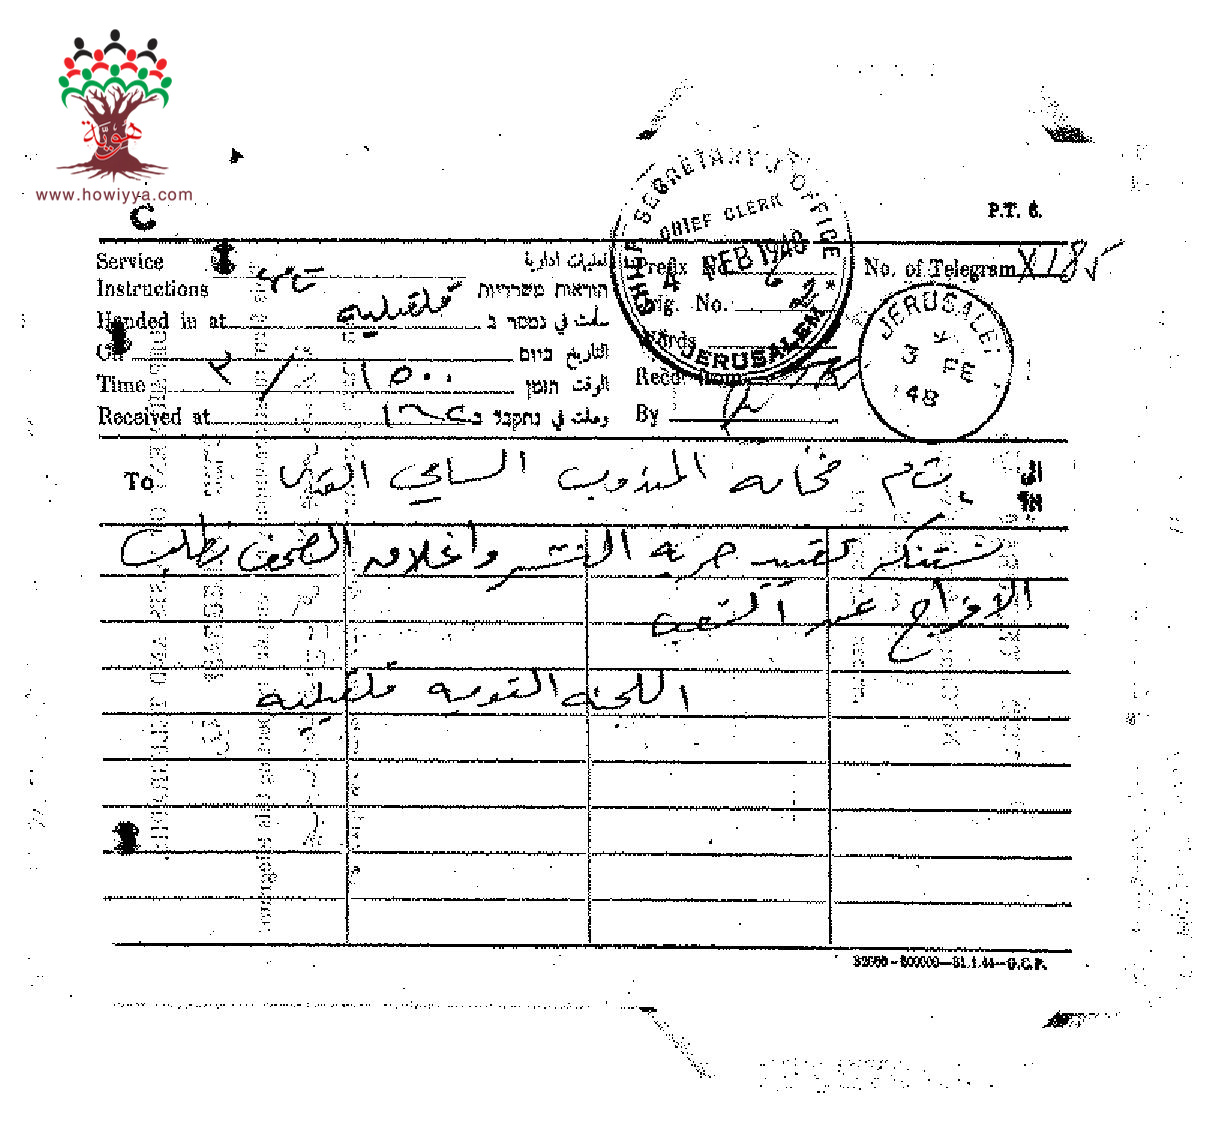 هويّة
www.howiyya.com
C
P.T. 6.
CHIEF SECRETARY'S OFFICE
CHIEF CLERK
4 FEB 1948
JERUSALEM
Service
Instructions
تعليمات ادارية
הוראות משרדיות
Prefix No.
No. of Telegram X185
Handed in at قلقيلية سلمت في נמסר ב
Orig. No.
Words
JERUSALEM
3 FE
48
On ٢/ التاريخ ביום
Time ١٥٠٠ الوقت הזמן
Recd. from
Received at وصلت في נתקבל ב
By
To فخامة المندوب السامي القدس الى אל
نستنكر تقييد حرية النشر واغلاق الصحف نطلب
الافراج عن الشعب
اللجنة القومية قلقيلية
32000-800000-31.1.44-G.C.P.